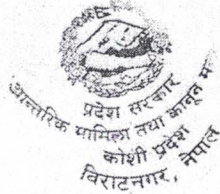 प्रदेश सरकार
आन्तरिक मामिला तथा कानून म
कोशी प्रदेश
विराटनगर, नेपाल